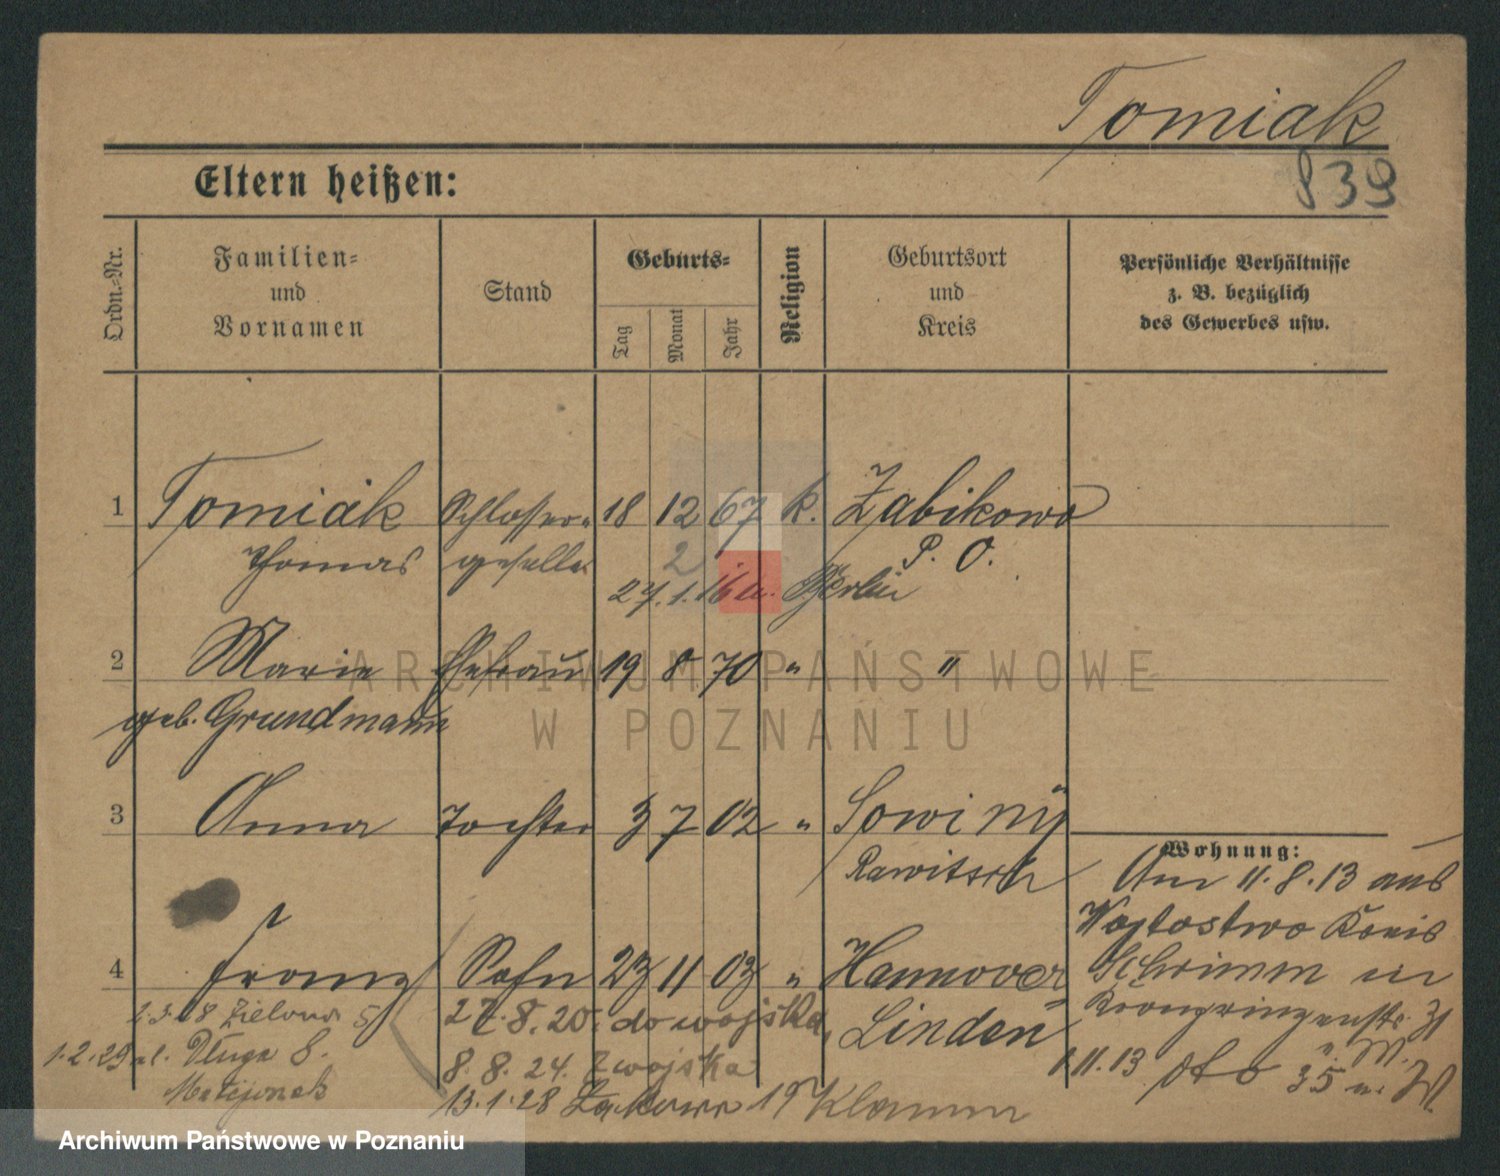 Tomiak
839
Eltern heißen:
Ordn.-Nr.
Familien-
und
Vornamen
Stand
Geburts-
Tag
Monat
Jahr
Religion
Geburtsort
und
Kreis
Persönliche Verhältnisse
z. B. bezüglich
des Gewerbes usw.
1 Tomiak Schlosser- 18 12 67 k. Żabikowo
Thomas geselle P. O.
2
27. 1. Berlin
2 Marie Ehefrau 19 8 70 " "
geb. Grundmann
3 Anna Tochter 3 7 02 " Sowiny
Rawitsch
Wohnung:
Am 11.8.13 aus
Wojtostwo Kreis
Schrimm in
Kronprinzenstr. 31
1.11.13 dto 35
4 Franz Sohn 23 11 03 " Hannover
Linden
Zielona 5
27.8.20. do wojska
1.2.29 Długa 8.
8.8.24. z wojska
Matejonek
13.1.28 Łąkowa 19
ARCHIWUM PAŃSTWOWE
W POZNANIU
Archiwum Państwowe w Poznaniu